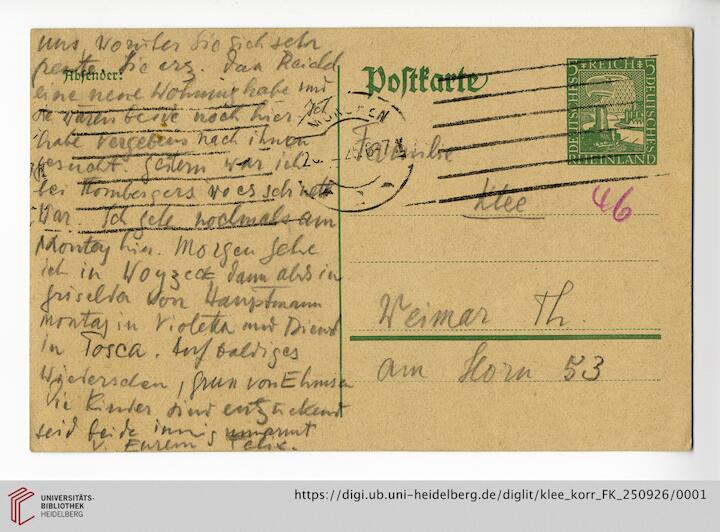 uns, worüber Sie sich sehr
freute. Sie erz. dan Reidl
eine neue Wohnung habe und
die waren beide noch hier. Ich
habe vergebens nach ihnen
gesucht. Gestern war ich
bei Hombergers wo es sehr nett
war. Ich gehe nochmals am
Montag hin. Morgen gehe
ich in Woyzeck dann abds in
Griselda von Hauptmann
Montag in Violetta und Dienst
in Tosca. Auf baldiges
Wiedersehen, 
Die Kinder sind entzückend
seid beide innig umarmt
v. Eurem Felix.
Absender:
Postkarte
MÜNCHEN
DEUTSCHES REICH
5 5
RHEINLAND
Familie
Klee
46
Weimar Th.
am Horn 53
UNIVERSITÄTS-
BIBLIOTHEK
HEIDELBERG
https://digi.ub.uni-heidelberg.de/diglit/klee_korr_FK_250926/0001